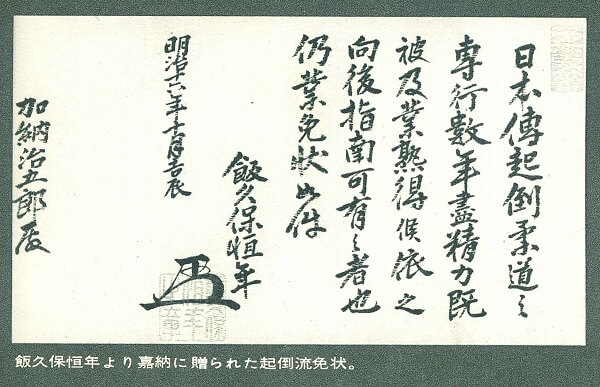 日本傳起倒柔道之
專行数年盡精力既
被及業熟得候依之
向後指南可有之者也
仍業免状如件
飯久保恒年
明治十六年十月吉辰
加納治五郎殿
飯久保恒年より嘉納に贈られた起倒流免状。